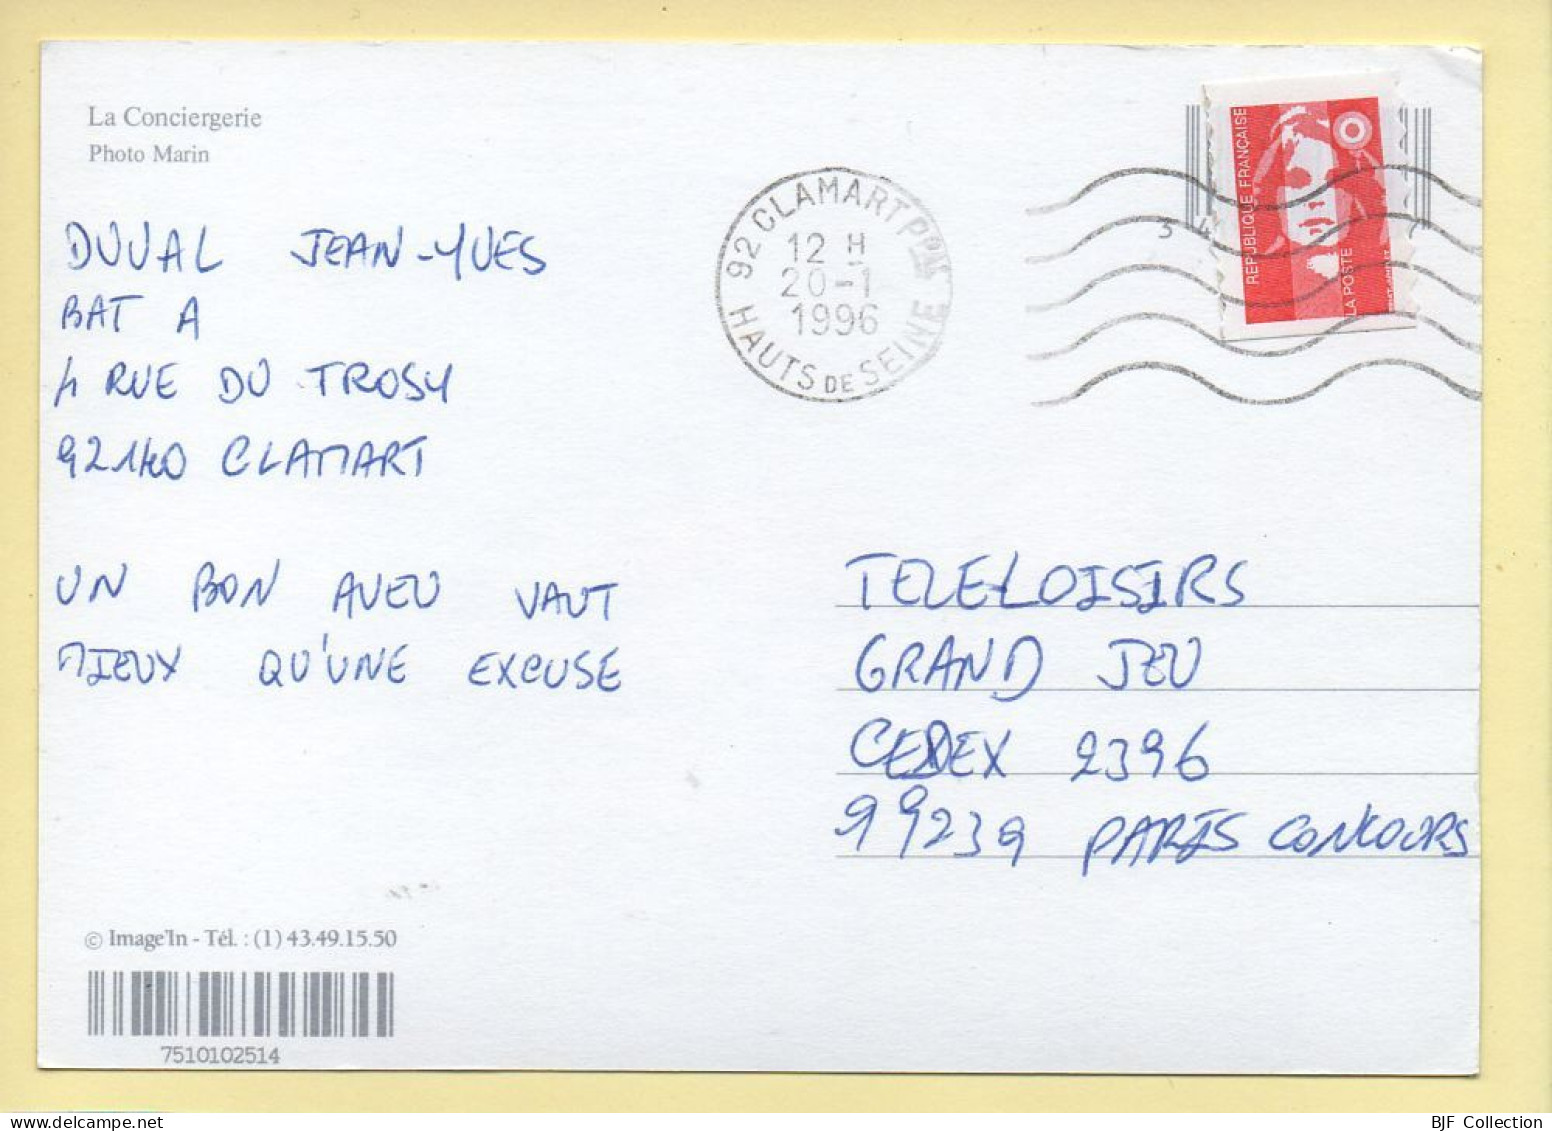 La Conciergerie
Photo Marin
DUVAL JEAN-YVES
BAT A
4 RUE DU TROSY
92140 CLAMART
UN BON AVEU VAUT
MIEUX QU'UNE EXCUSE
92 CLAMART PPAL
12 H
20-1
1996
HAUTS DE SEINE
REPUBLIQUE FRANÇAISE
LA POSTE
TELE-LOISIRS
GRAND JEU
CEDEX 2396
99239 PARIS CONCOURS
© Image'In - Tél. : (1) 43.49.15.50
7510102514
BJF Collection